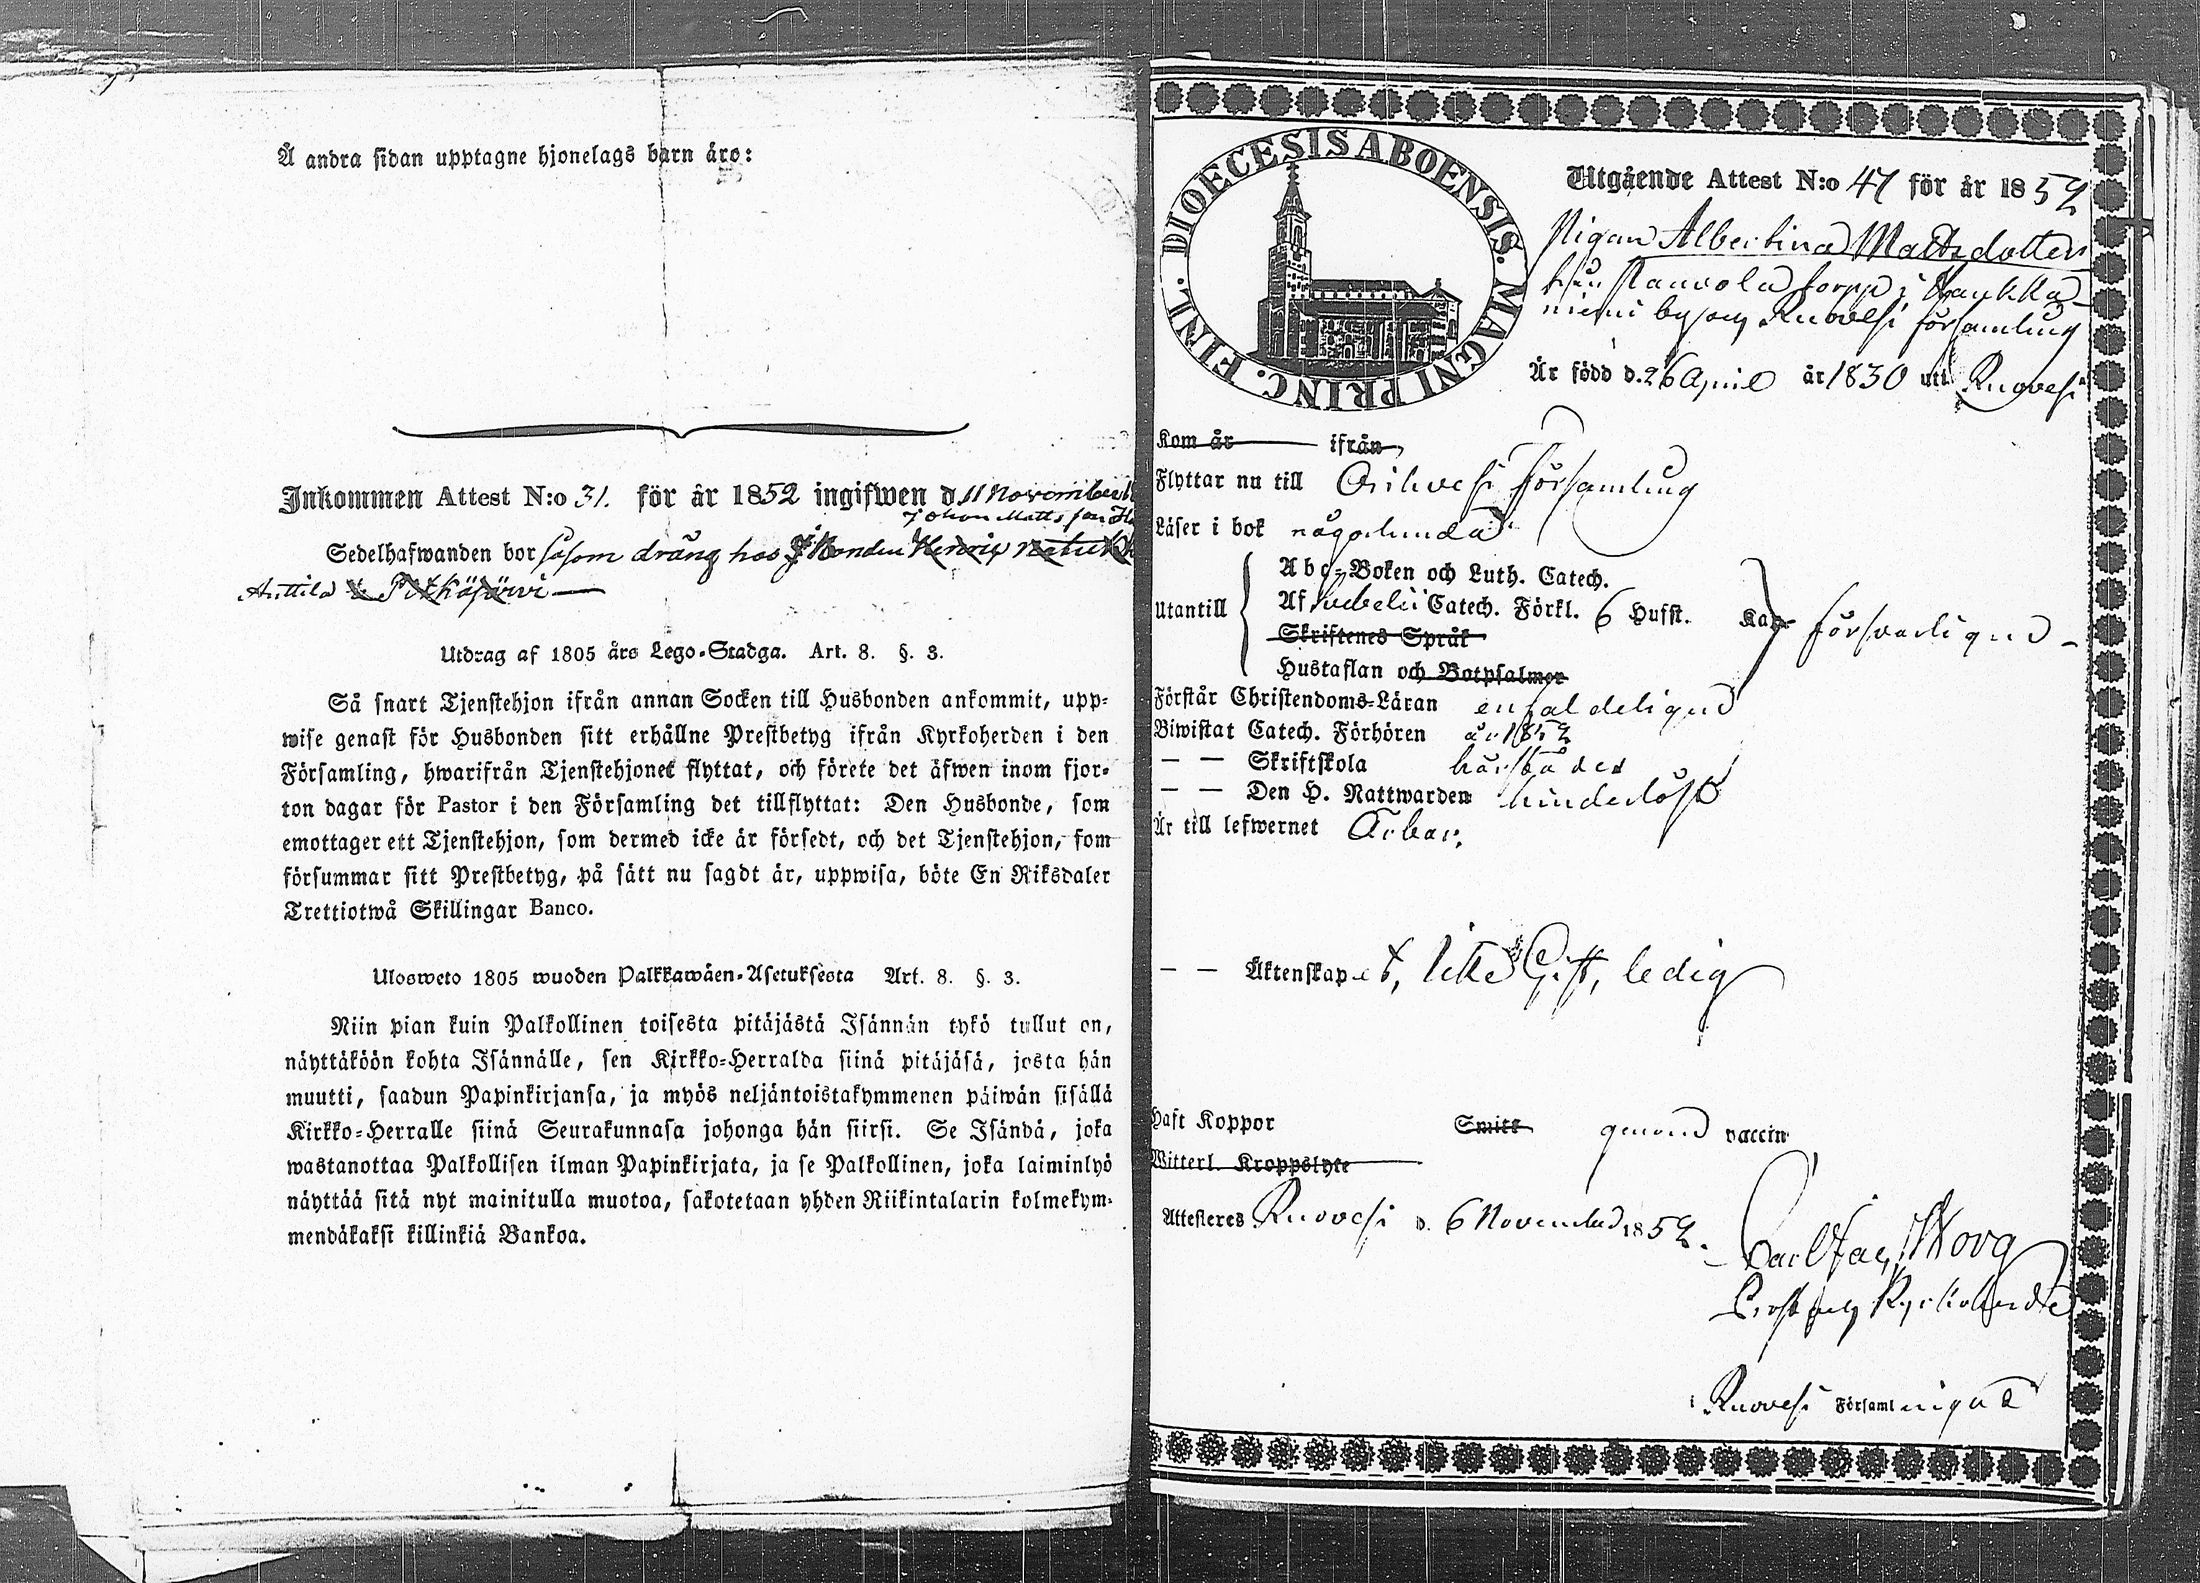 Å andra sidan upptagne hjonelags barn äro:
Inkommen Attest N:o 31. för år 1852 ingifwen d. 11 November
Johan Matts son
Sedelhafwanden bor såsom dräng hos Bonden Henrik
Anttila i Pitkäjärwi
Utdrag af 1805 års Lego-Stadga. Art. 8. §. 3.
Så snart Tjenstehjon ifrån annan Socken till Husbonden ankommit, upp-
wise genast för Husbonden sitt erhållne Prestbetyg ifrån Kyrkoherden i den
Församling, hwarifrån Tjenstehjonet flyttat, och förete det äfwen inom fjor-
ton dagar för Pastor i den Församling det tillflyttat: Den Husbonde, som
emottager ett Tjenstehjon, som dermed icke är försedt, och det Tjenstehjon, som
försummar sitt Prestbetyg, på sätt nu sagdt är, uppwisa, böte En Riksdaler
Trettiotwå Skillingar Banco.
Ulosweto 1805 wuoden Palkkawäen-Asetuksesta Art. 8. §. 3.
Niin pian kuin Palkollinen toisesta pitäjästä Isännän tykö tullut on,
näyttäköön kohta Isännälle, sen Kirkko-Herralda siinä pitäjäsä, josta hän
muutti, saadun Papinkirjansa, ja myös neljäntoistakymmenen päiwän sisällä
Kirkko-Herralle siinä Seurakunnasa johonga hän siirsi. Se Isändä, joka
wastanottaa Palkollisen ilman Papinkirjata, ja se Palkollinen, joka laiminlyö
näyttää sitä nyt mainitulla muotoa, sakotetaan yhden Riikintalarin kolmekym-
mendäkaksi killinkiä Bankoa.
DIOECESIS ABOENSIS. MAGNI PRINC. FINL.
Utgående Attest N:o 47 för år 1852
Pigan Albertina Mattsdotter
från torpp i Haukka-
niemi by och Ruovesi församling
Är född d. 26 April år 1830 uti Ruovesi
Kom år ifrån
Flyttar nu till Orihvesi Församling
Läser i bok någorlunda
Abc-Boken och Luth. Catech.
Utantill Af Svebelii Catech. Förkl. 6 Hufst. Kap. försvarligen
Skriftenes Språk
Hustaflan och Botpsalmer
Förstår Christendoms-Läran enfaldeligen
Biwistat Catech. Förhören år 1852
— — Skriftskola härstädes
— — Den H. Nattwarden hinderlöst
Är till lefwernet Ärbar,
— — Äktenskapet, icke Gift, ledig
Haft Koppor Smitt genom vaccin
Witterl. Kroppslyte
Attesteres Ruovesi d. 6 November 1852.
Prost och Kyrkoherde
i Ruovesi Församlingen